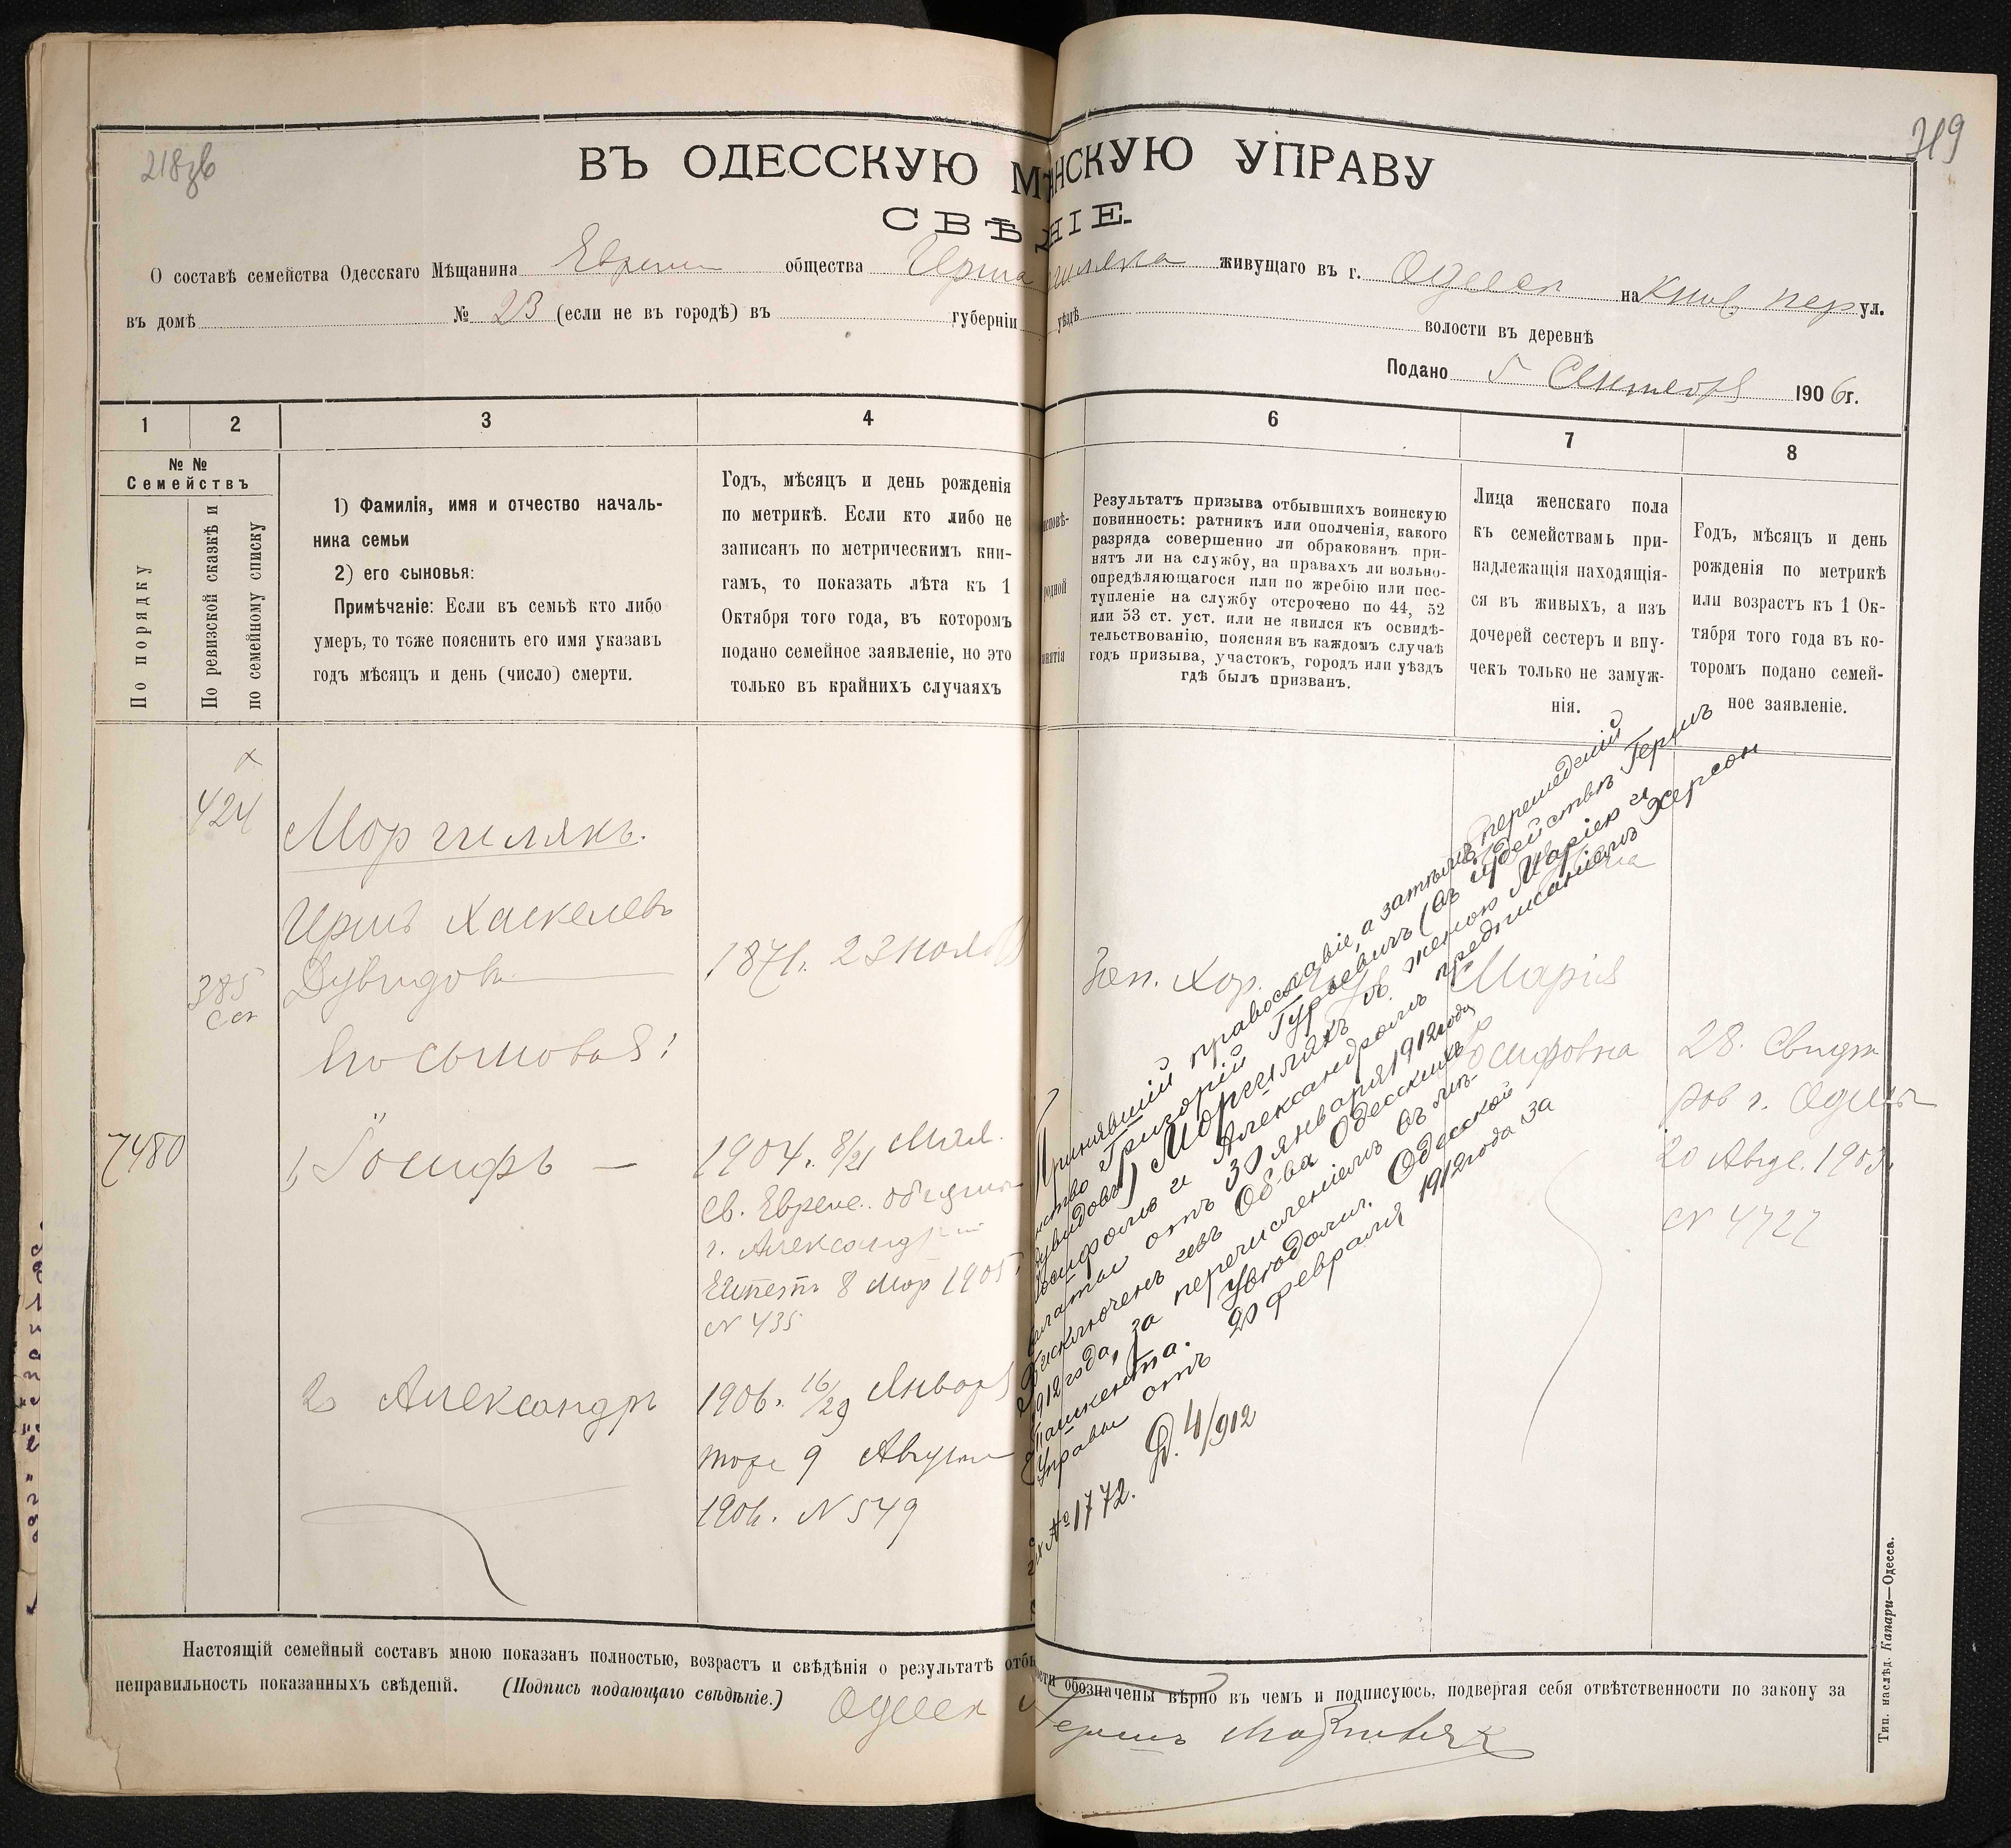 719
218зв
ВЪ ОДЕССКУЮ М НСКУЮ УПРАВУ
СВѢ НІЕ.
О составѣ семейства Одесскаго Мѣщанина общества живущаго въ г. Одессѣ на пер ул.
въ домѣ № 23 (если не въ городѣ) въ губерніи уѣздѣ волости въ деревнѣ
Подано 5 Сентября 1906 г.
1 2 3 4 6 7 8
№ №
Семействъ
По порядку
По ревизской сказкѣ и
по семейному списку
1) Фамилія, имя и отчество началь-
ника семьи
2) его сыновья:
Примѣчаніе: Если въ семьѣ кто либо
умеръ, то тоже пояснить его имя указавъ
годъ мѣсяцъ и день (число) смерти.
Годъ, мѣсяцъ и день рожденія
по метрикѣ. Если кто либо не
записанъ по метрическимъ кни-
гамъ, то показать лѣта къ 1
Октября того года, въ которомъ
подано семейное заявленіе, но это
только въ крайнихъ случаяхъ
исповѣ-
родной
нятія
Результатъ призыва отбывшихъ воинскую
повинность: ратникъ или ополченія, какого
разряда совершенно ли обракованъ при-
нятъ ли на службу, на правахъ ли вольно-
опредѣляющагося или по жребію или пос-
тупленіе на службу отсрочено по 44, 52
или 53 ст. уст. или не явился къ освидѣ-
тельствованію, поясняя въ каждомъ случаѣ
годъ призыва, участокъ, городъ или уѣздъ
гдѣ былъ призванъ.
Лица женскаго пола
къ семействамъ при-
надлежащія находящія-
ся въ живыхъ, а изъ
дочерей сестеръ и вну-
чекъ только не замуж-
нія.
Годъ, мѣсяцъ и день
рожденія по метрикѣ
или возрастъ къ 1 Ок-
тября того года въ ко-
торомъ подано семей-
ное заявленіе.
424
Моргилякъ.
Иршъ Хаскелевъ
Дувидовъ
385
1871. 23 ноября
Зап. Хор.
Марія
Іосифовна
28.
г. Одессы
20 Авгус. 1905.
N 4727
Его сыновья:
7480
1, Іосифъ —
1904. 8/21 Мая.
св. Еврейс. общины
г. Александрии
Египетъ 8 Мар 1905
N 435
2 Александръ
1906. 16/29 Января
тоже 9 Августа
1906. N 549
Принявшій православіе, а затѣмъ перешедшій
нство Григорій Гурьевичъ (въ іудействѣ Гершъ
Дувидовъ) Моргилякъ съ женою Маріею и
Іосифомъ и Александромъ предписаніемъ Херсон
алаты отъ 30 января 1912 года
исключенъ изъ Об-ва Одесскихъ
1912 года, за перечисленіемъ въ
Ташкента. Увѣдомл. Одесской
Управы отъ 20 февраля 1912 года за
№ 1772. Д. 4/912
Настоящій семейный составъ мною показанъ полностью, возрастъ и свѣдѣнія о результатѣ отбы ости обозначены вѣрно въ чемъ и подписуюсь, подвергая себя отвѣтственности по закону за
неправильность показанныхъ свѣденій. (Подпись подающаго свѣдѣніе.) Одесск
Гершъ
Тип. наслѣд. Капари—Одесса.